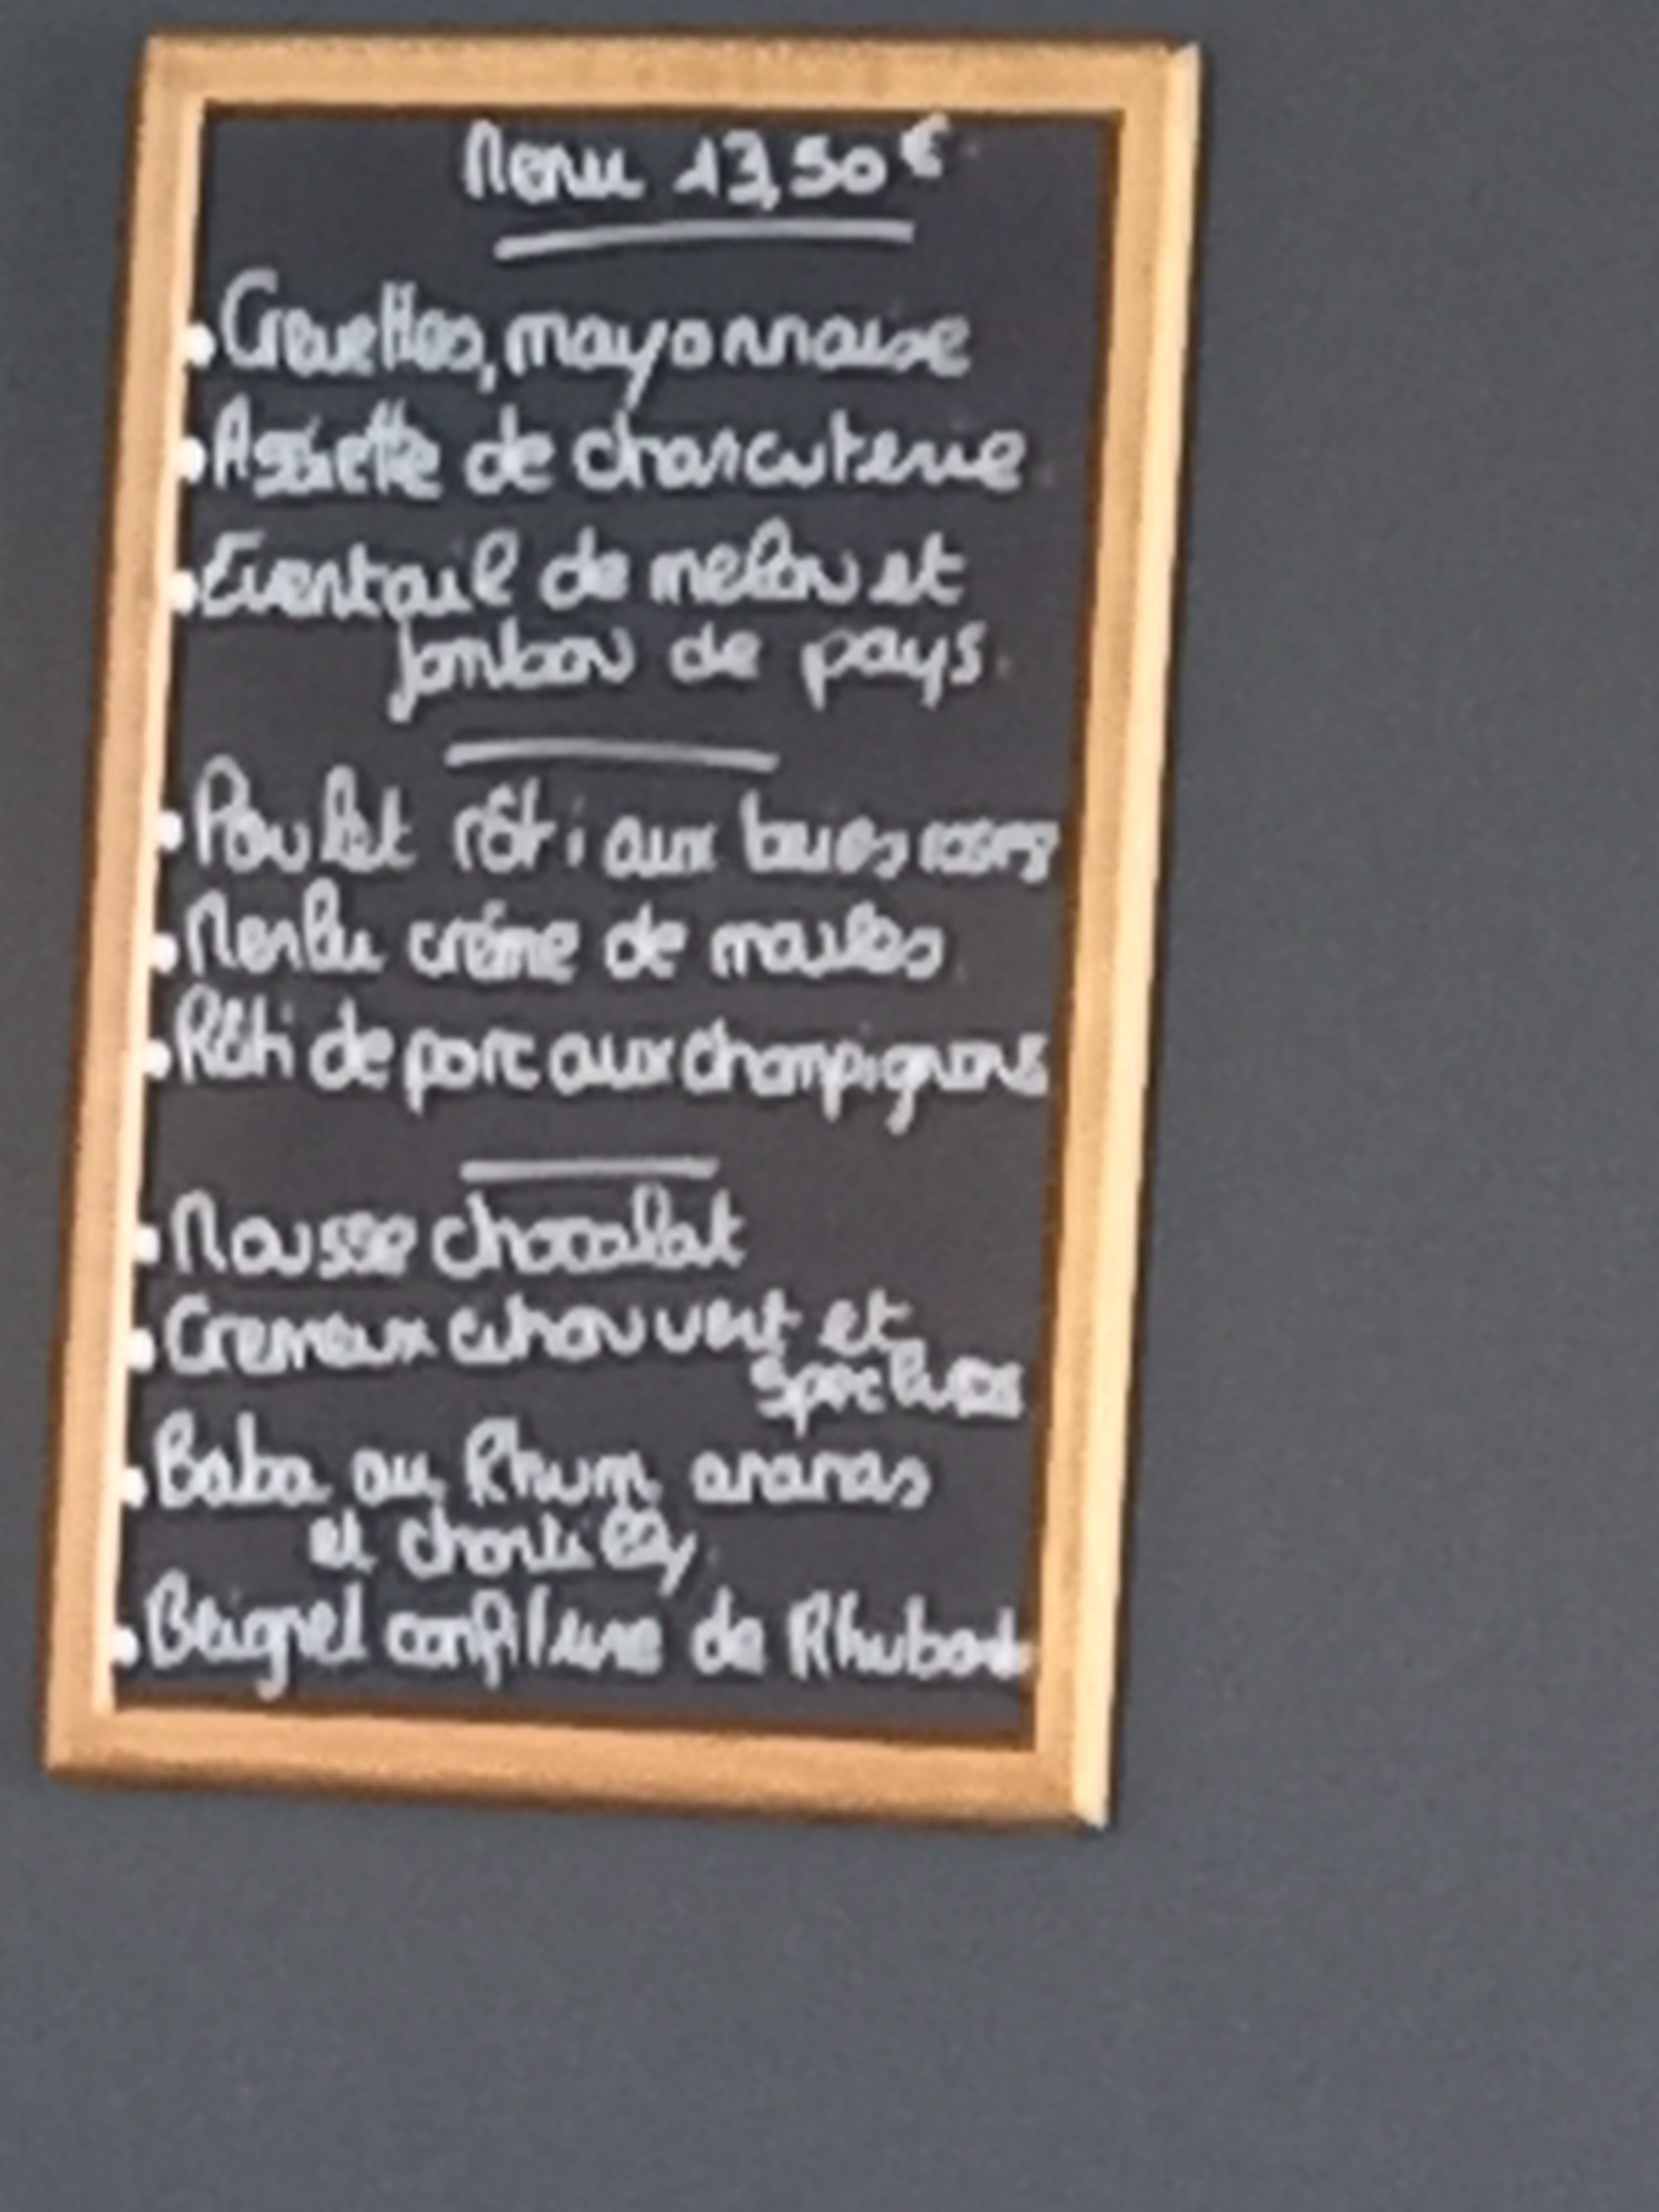 Menu 13,50€
• Crevettes, mayonnaise
• Assiette de charcuterie
• Eventail de melon et
jambon de pays.
• Poulet rôti aux baies roses
• Merlu crème de moules
• Rôti de porc aux champignons
• Mousse chocolat
• Cremeux citron vert et
speculoos
• Baba au Rhum ananas
et chantilly
• Beignet confiture de Rhubarb